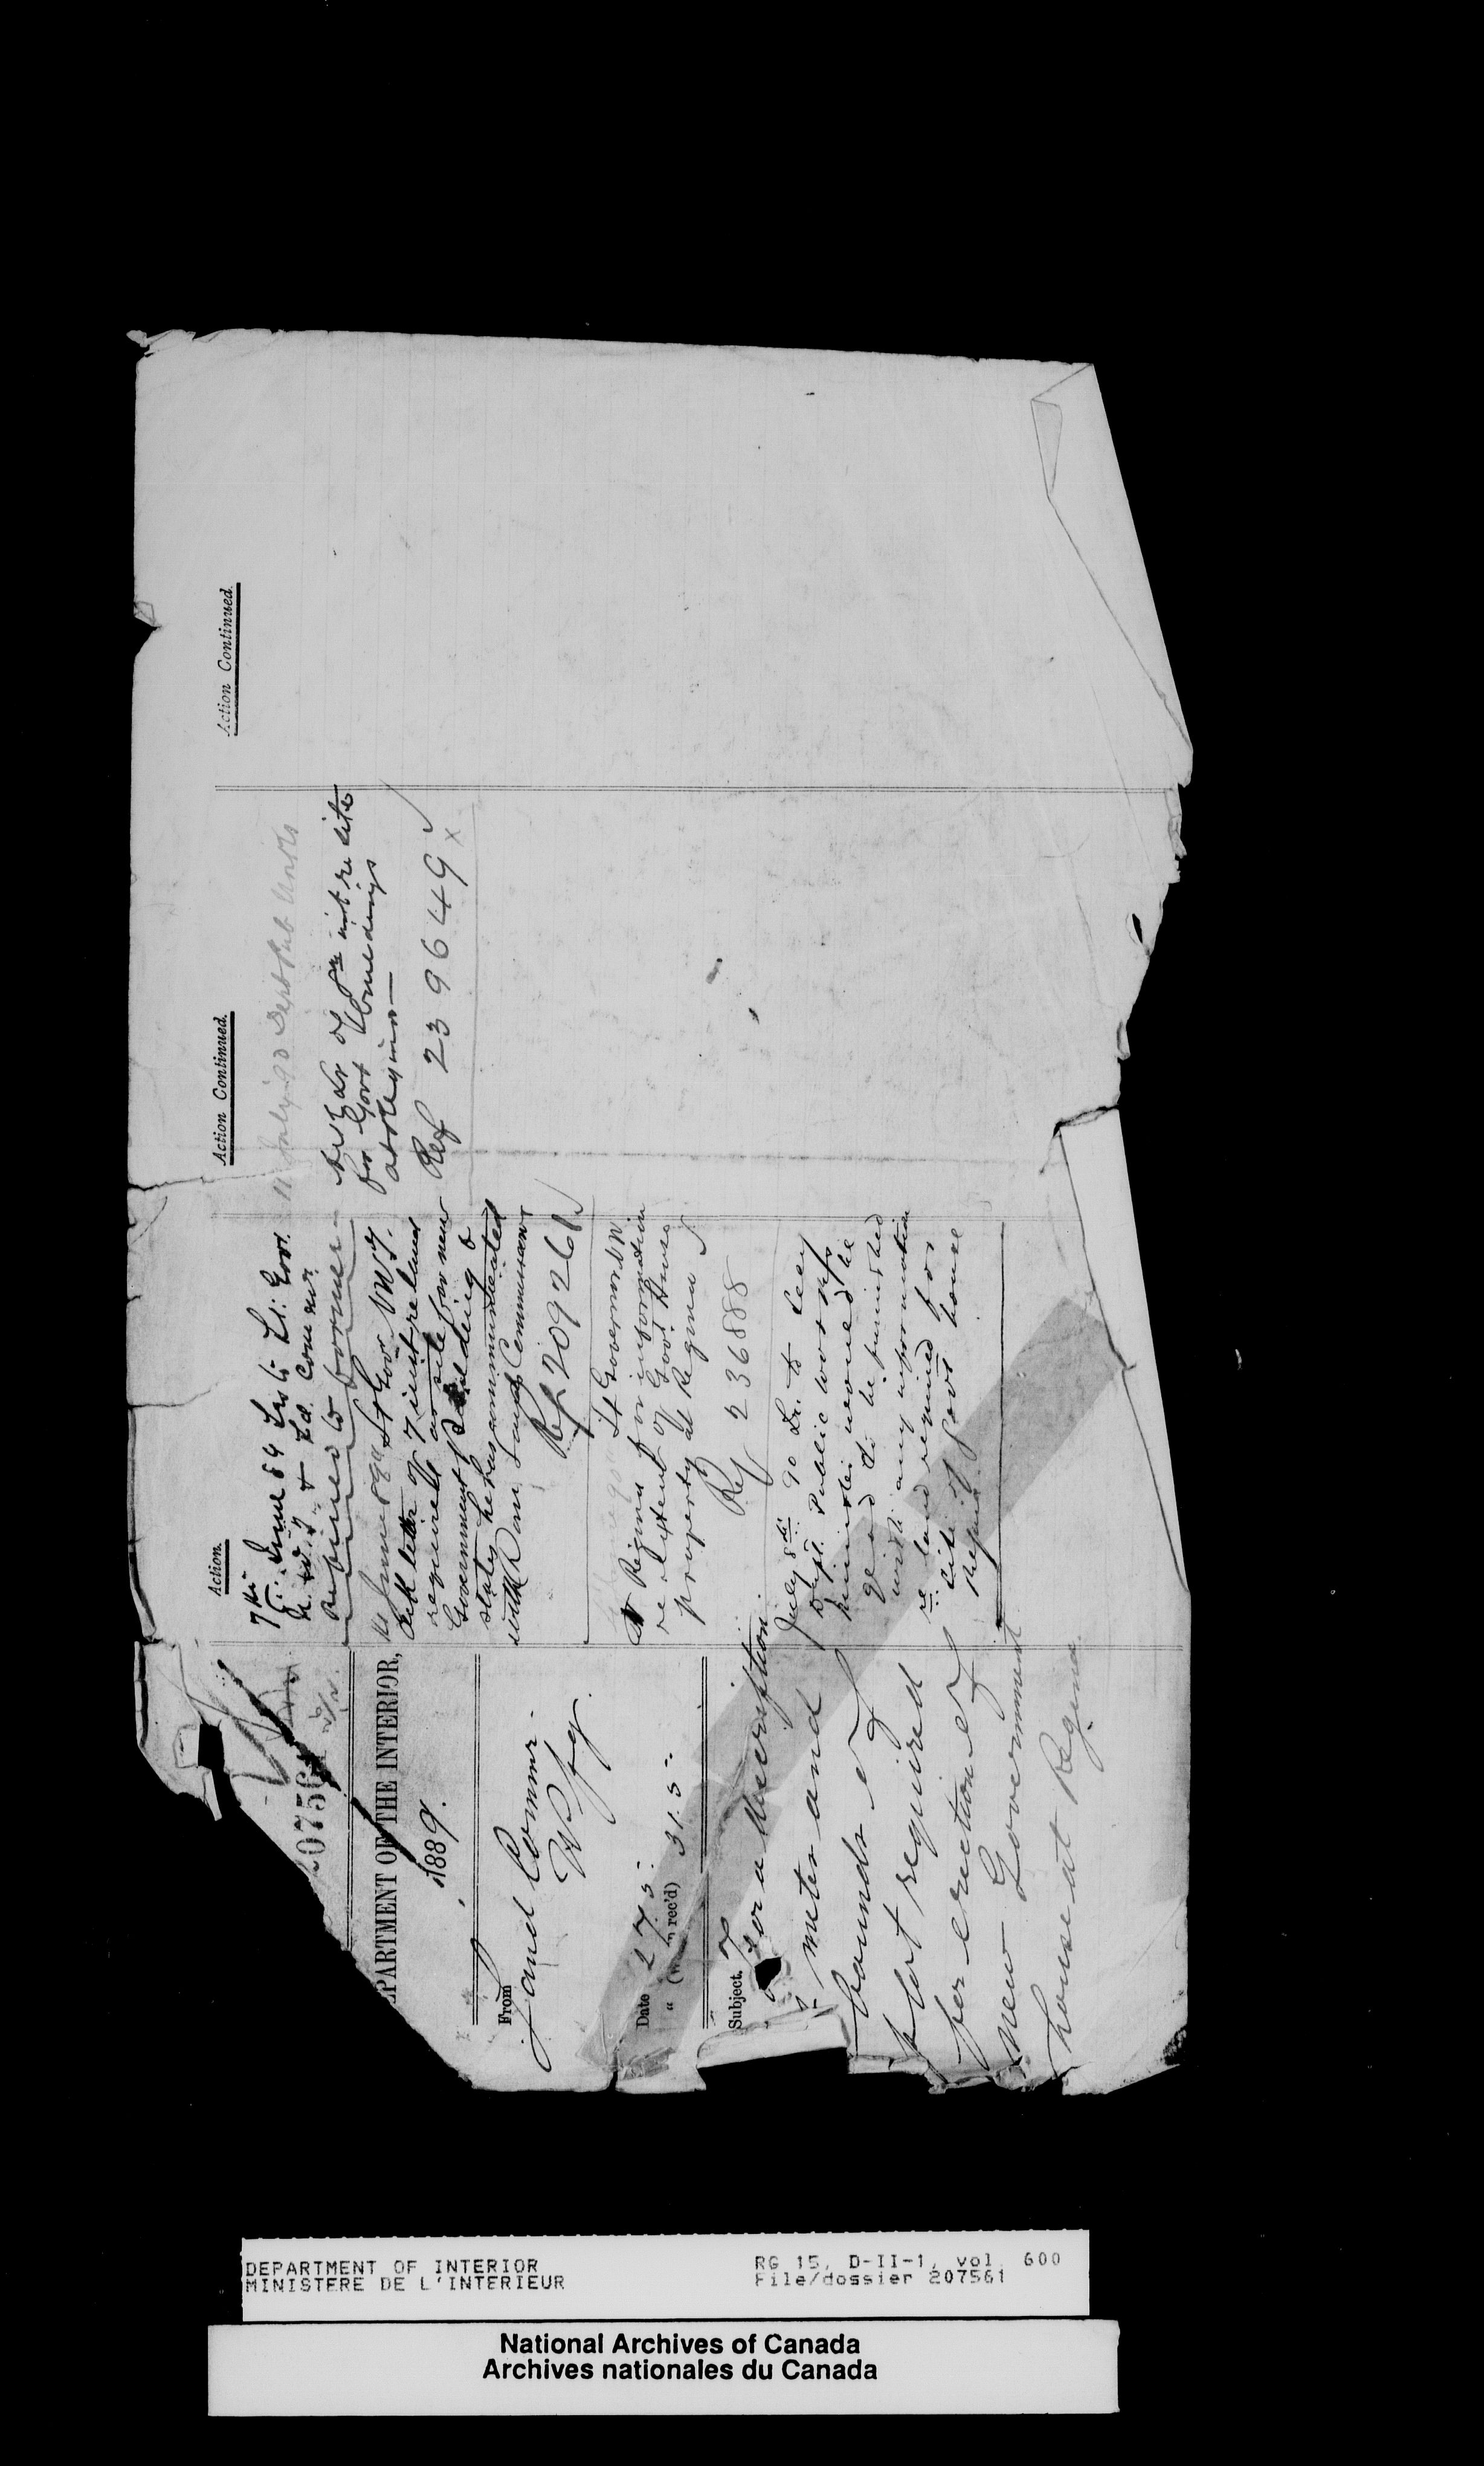 207561
DEPARTMENT OF THE INTERIOR,
1889.
From
Land Commr.
Wpg.
Date 27.5.
" (when rec'd) 31.5.
Subject.
For a description
meter and
bounds of
plot required
for erection of
new Government
house at Regina.
Action.
7th June 89 Lrs to Lt. Govr.
N.W.T. & Ld. Commr.
Refined to former
Lt Gov NWT.
Ack letter of 7 inst re land
required as site for new
Government Building &
states he has communicated
with Dom Lands Commissioner
Ref 209261
Lt Governor NW
Regina for information
re extent of Govt House
property at Regina
Ref 236888
July 8th 90 Lr. to Secy
Dept. Public Works
Minister would be
glad to be furnished
with any information
re land required for
site of Govt house
Regina
Action Continued.
11 July 90 Dept Pub Works
Lr of inst re site
for Govt buildings
at Regina—
Ref 239649 x
Action Continued.
DEPARTMENT OF INTERIOR
MINISTERE DE L'INTERIEUR
RG 15, D-II-1, vol. 600
File/dossier 207561
National Archives of Canada
Archives nationales du Canada